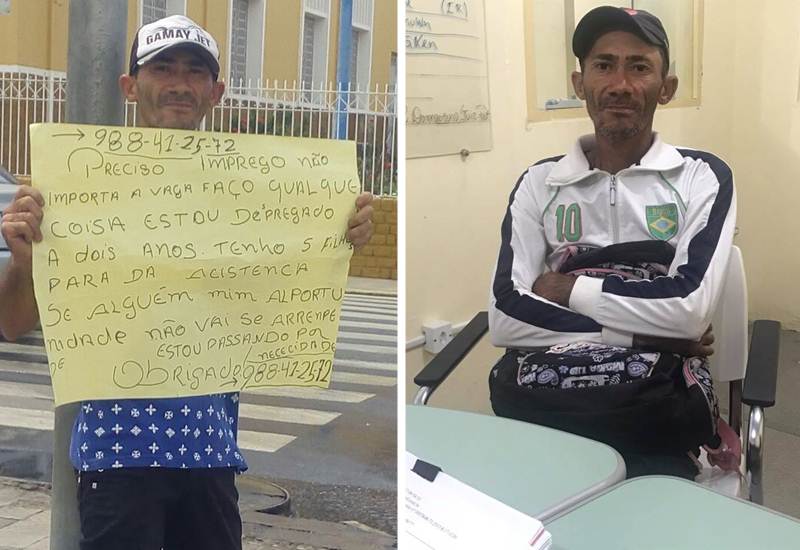 GAMAY JET
→ 988-41-25-72
PRECISO IMPREGO NÃO
IMPORTA A VAGA FAÇO QUALQUE
COISA ESTOU DEPREGADO
A DOIS ANOS. TENHO 5 FILHOS
PARA DA ACISTENCA
SE ALGUÉM MIM ALPORTU
NIDADE NÃO VAI SE ARREPE
DE ESTOU PASSANDO POR
NECECIDADE
OBRIGADO → 988-41-25-72
10